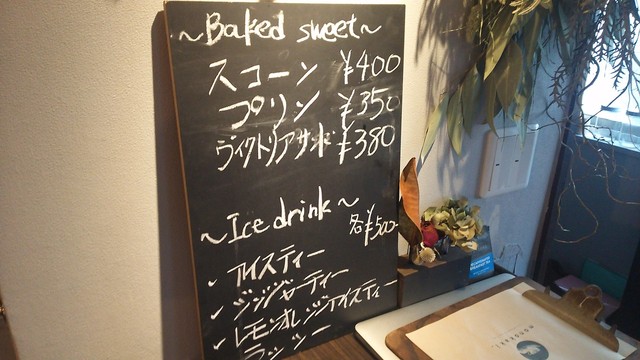 ~Baked sweet~
スコーン ¥400
プリン ¥350
ヴィクトリアサンド ¥380
~Ice drink~
各¥500
✓ アイスティー
✓ ジンジャーティー
✓ レモンオレンジアイスティー
ラッシー